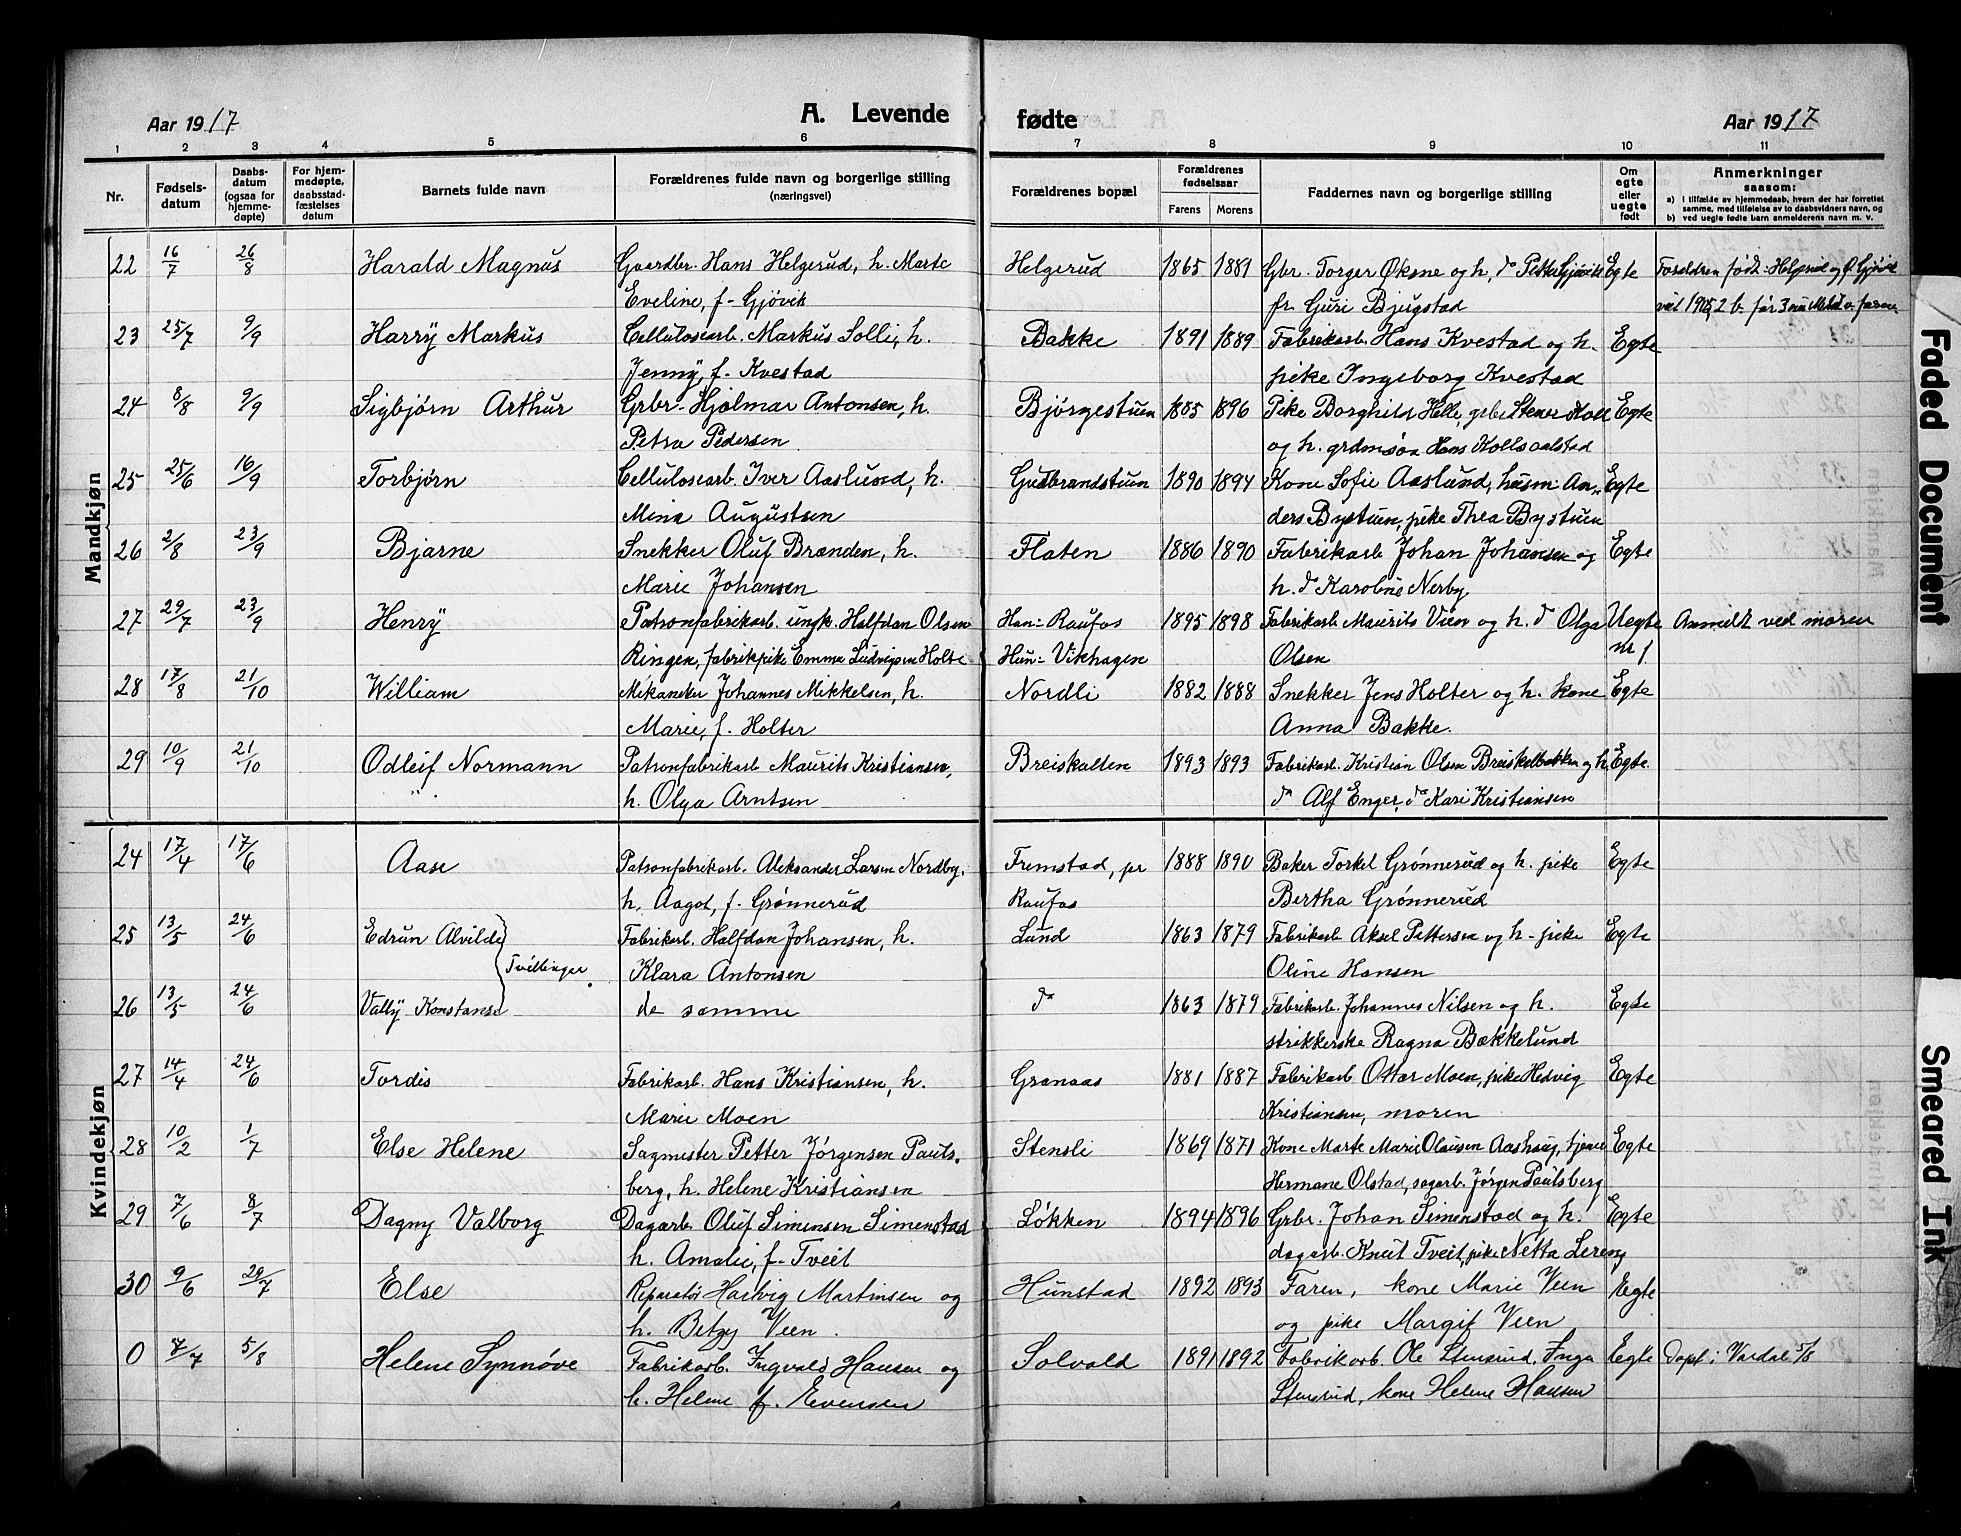 Aar 1917 A. Levende fødte Aar 1917
1 2 3 4 5 6 7 8 9 10 11
Nr. Fødsels-datum Daabs-datum (ogsaa for hjemme-døpte) For hjem-medøpte, daabsstad-fæstelses datum Barnets fulde navn Forældrenes fulde navn og borgerlige stilling (næringsvei) Forældrenes bopæl Forældrenes fødselsaar Farens Morens Faddernes navn og borgerlige stilling Om egte eller uegte født Anmerkninger saasom:
a) i tilfælde av hjemmedaab, hvem der har forrettet samme, med tilføielse av to daabsvidners navn, og
b) ved uegte fødte barn anmelderens navn m. v.
Mandkjøn
22 16/7 26/8 Harald Magnus Gaardbr. Hans Helgerud, h. Marte Helgerud 1865 1881 Gbr. Torger Øksne og h, do Petter Gjøvik Egte
Eveline, f. Gjøvik fr. Guri Bjugstad
23 25/7 9/9 Harry Markus Cellulosearb. Markus Solli, h. Bakke 1891 1889 Fabrikarb. Hans Kvestad og h. Egte
Jenny, f. Kvestad pike Ingeborg Kvestad
24 8/8 9/9 Sigbjørn Arthur Grbr. Hjalmar Antonsen, h. Bjørgestuen 1885 1896 Pike Borghild Helle, grbr Stener Koll Egte
Petra Pedersen og h. grdmsøn Hans Kollsaalstad
25 25/6 16/9 Torbjørn Cellulosearb. Iver Aaslund, h. Gudbrandstuen 1890 1894 Kone Sofie Aaslund, husm. An- Egte
Mina Augustsen ders Bystuen, pike Thea Bystuen
26 2/8 23/9 Bjarne Snekker Oluf Brænden, h. Flaten 1886 1890 Fabrikarb Johan Johansen og Egte
Marie Johansen h. do Karoline Nerby
27 29/7 23/9 Henry Patronfabrikarb. ungk. Halfdan Olsen Han- Raufos 1895 1898 Fabrikarb Maurits Vien og h. do Olga Uegte Anmeldt ved moren
Ringen, fabrikpike Emma Ludvigsen Holte Hun- Vikhagen Olsen nr 1
28 17/8 21/10 William Mekaniker Johannes Mikkelsen, h. Nordli 1882 1888 Snekker Jens Holter og h. kone Egte
Marie, f. Holter Anna Bakke.
29 10/9 21/10 Odleif Normann Patronfabrikarb Maurits Kristiansen, Breiskallen 1893 1893 Fabrikarb. Kristian Olsen Breiskalbakken og h. Egte
h. Olga Arntsen do Alf Enger, do Kari Kristiansen
Kvindekjøn
24 17/4 17/6 Aase Patronfabrikarb. Aleksander Larsen Nordby, Fremstad, pr 1888 1890 Baker Torkel Grønnerud og h. pike Egte
h. Aagot, f. Grønnerud Raufos Bertha Grønnerud
25 13/5 24/6 Edrun Alvilde Fabrikarb. Halfdan Johansen, h. Lund 1863 1879 Fabrikarb Aksel Pettersen og h- pike Egte
Tvillinger Klara Antonsen Oline Hansen
26 13/5 24/6 Vally Konstanse de samme do 1863 1879 Fabrikarb. Johannes Nilsen og h. Egte
strikkerske Ragna Bækkelund
27 14/4 24/6 Tordis Fabrikarb. Hans Kristiansen, h. Granaas 1881 1887 Fabrikarb Ottar Moen, pike Hedvig Egte
Marie Moen Kristiansen, moren
28 10/2 1/7 Else Helene Sagmester Petter Jørgensen Pauls- Stensli 1869 1871 Kone Marte Marie Olausen Aashaug, Egte
berg, h. Helene Kristiansen Hermane Olstad, sagarb. Jørgen Paulsberg
29 7/6 8/7 Dagny Valborg Dagarb. Oluf Simensen Simenstad Løkken 1894 1896 Grbr. Johan Simenstad og h. Egte
h. Amalie, f. Tveit dagarb. Knut Tveit, pike Netta Lereng
30 9/6 29/7 Else Reparatør Harvig Martinsen og Hunstad 1892 1893 Faren, kone Marie Veen Egte
h. Betzy Veen. og pike Margit Veen
0 7/7 5/8 Helene Synnøve Fabrikarb. Ingvald Hansen og Solvold 1891 1892 Fabrikarb Ole Stensrud, Inga Egte Døpt i Vardal 5/8
h. Helene f. Evensen Stensrud, kone Helene Hansen
Faded Document
Smeared Ink